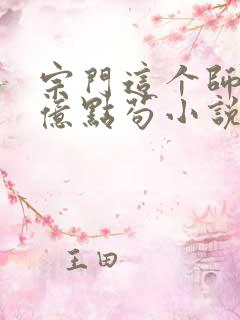 宗門這个師
億點苟小說
王田